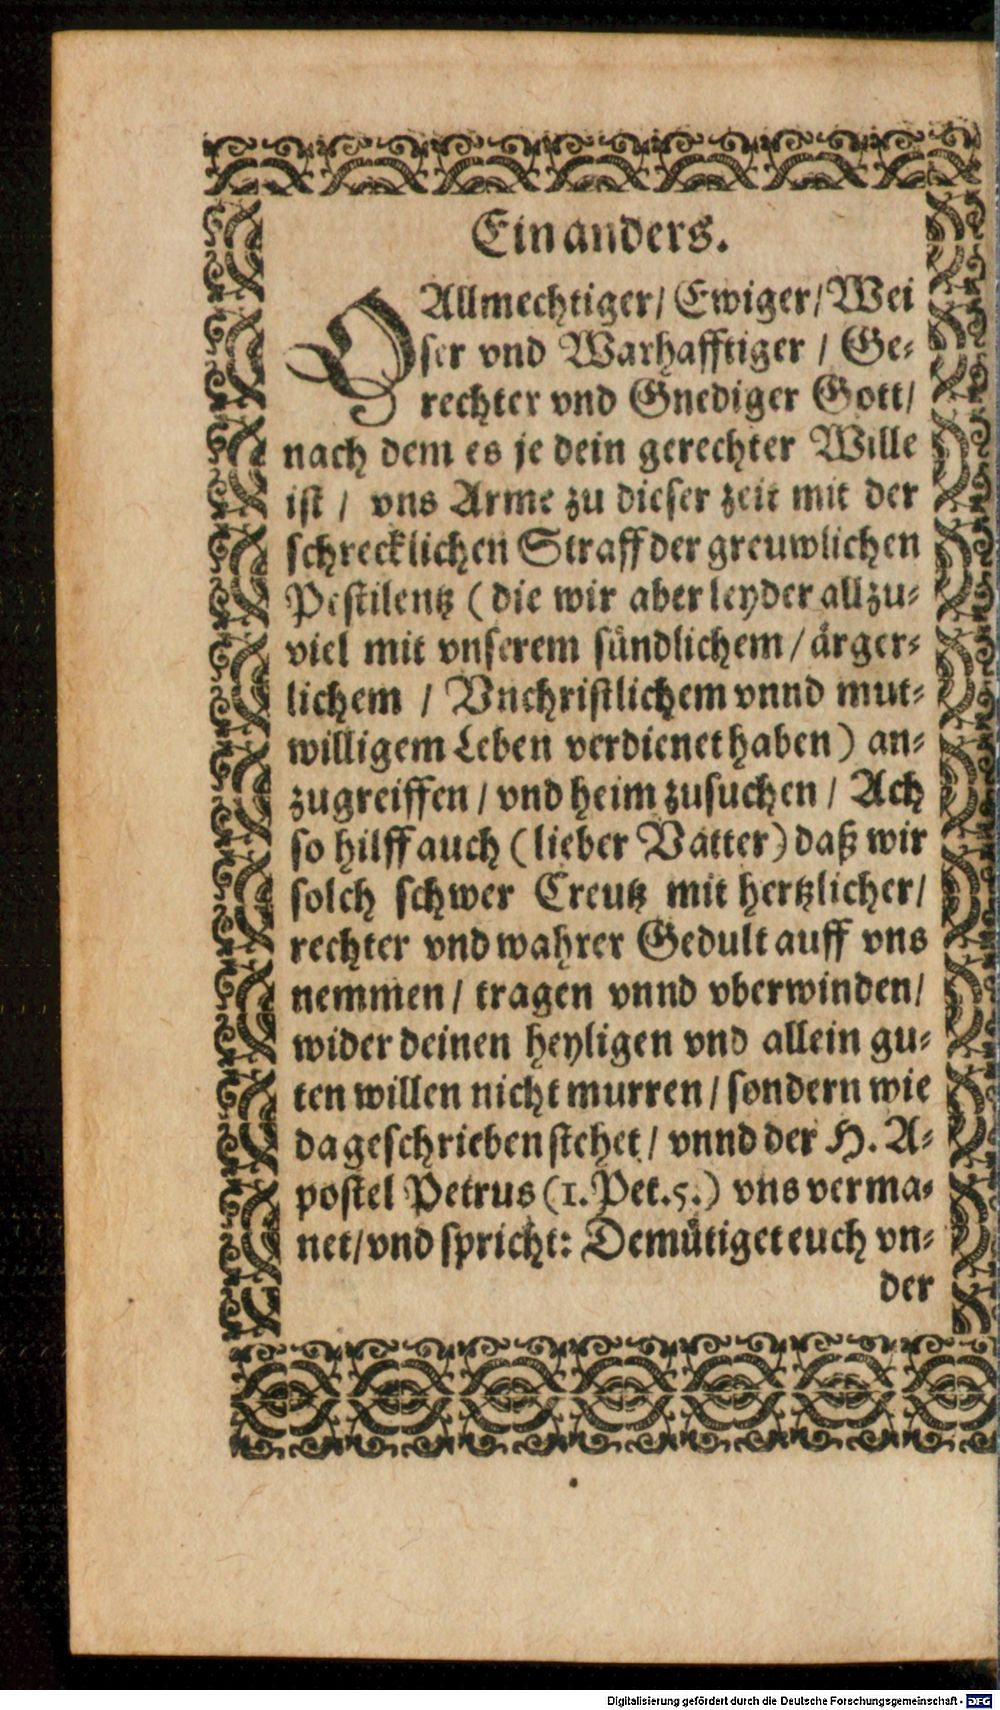 Ein anders.
O Allmechtiger/ Ewiger/ Wei
ser vnd Warhafftiger / Ge-
rechter vnd Gnediger Gott/
nach dem es je dein gerechter Wille
ist / vns Arme zu dieser zeit mit der
schrecklichen Straff der greuwlichen
Pestilentz (die wir aber leyder allzu-
viel mit vnserem sündlichem / ärger-
lichem / Vnchristlichem vnnd mut-
willigem Leben verdienet haben) an-
zugreiffen / vnd heim zusuchen / Ach
so hilff auch (lieber Vatter) daß wir
solch schwer Creutz mit hertzlicher/
rechter vnd wahrer Gedult auff vns
nemmen / tragen vnnd vberwinden/
wider deinen heyligen vnd allein gu-
ten willen nicht murren / sondern wie
da geschrieben stehet / vnnd der H. A-
postel Petrus (1. Pet. 5.) vns verma-
net/ vnd spricht: Demütiget euch vn-
der
Digitalisierung gefördert durch die Deutsche Forschungsgemeinschaft - DFG